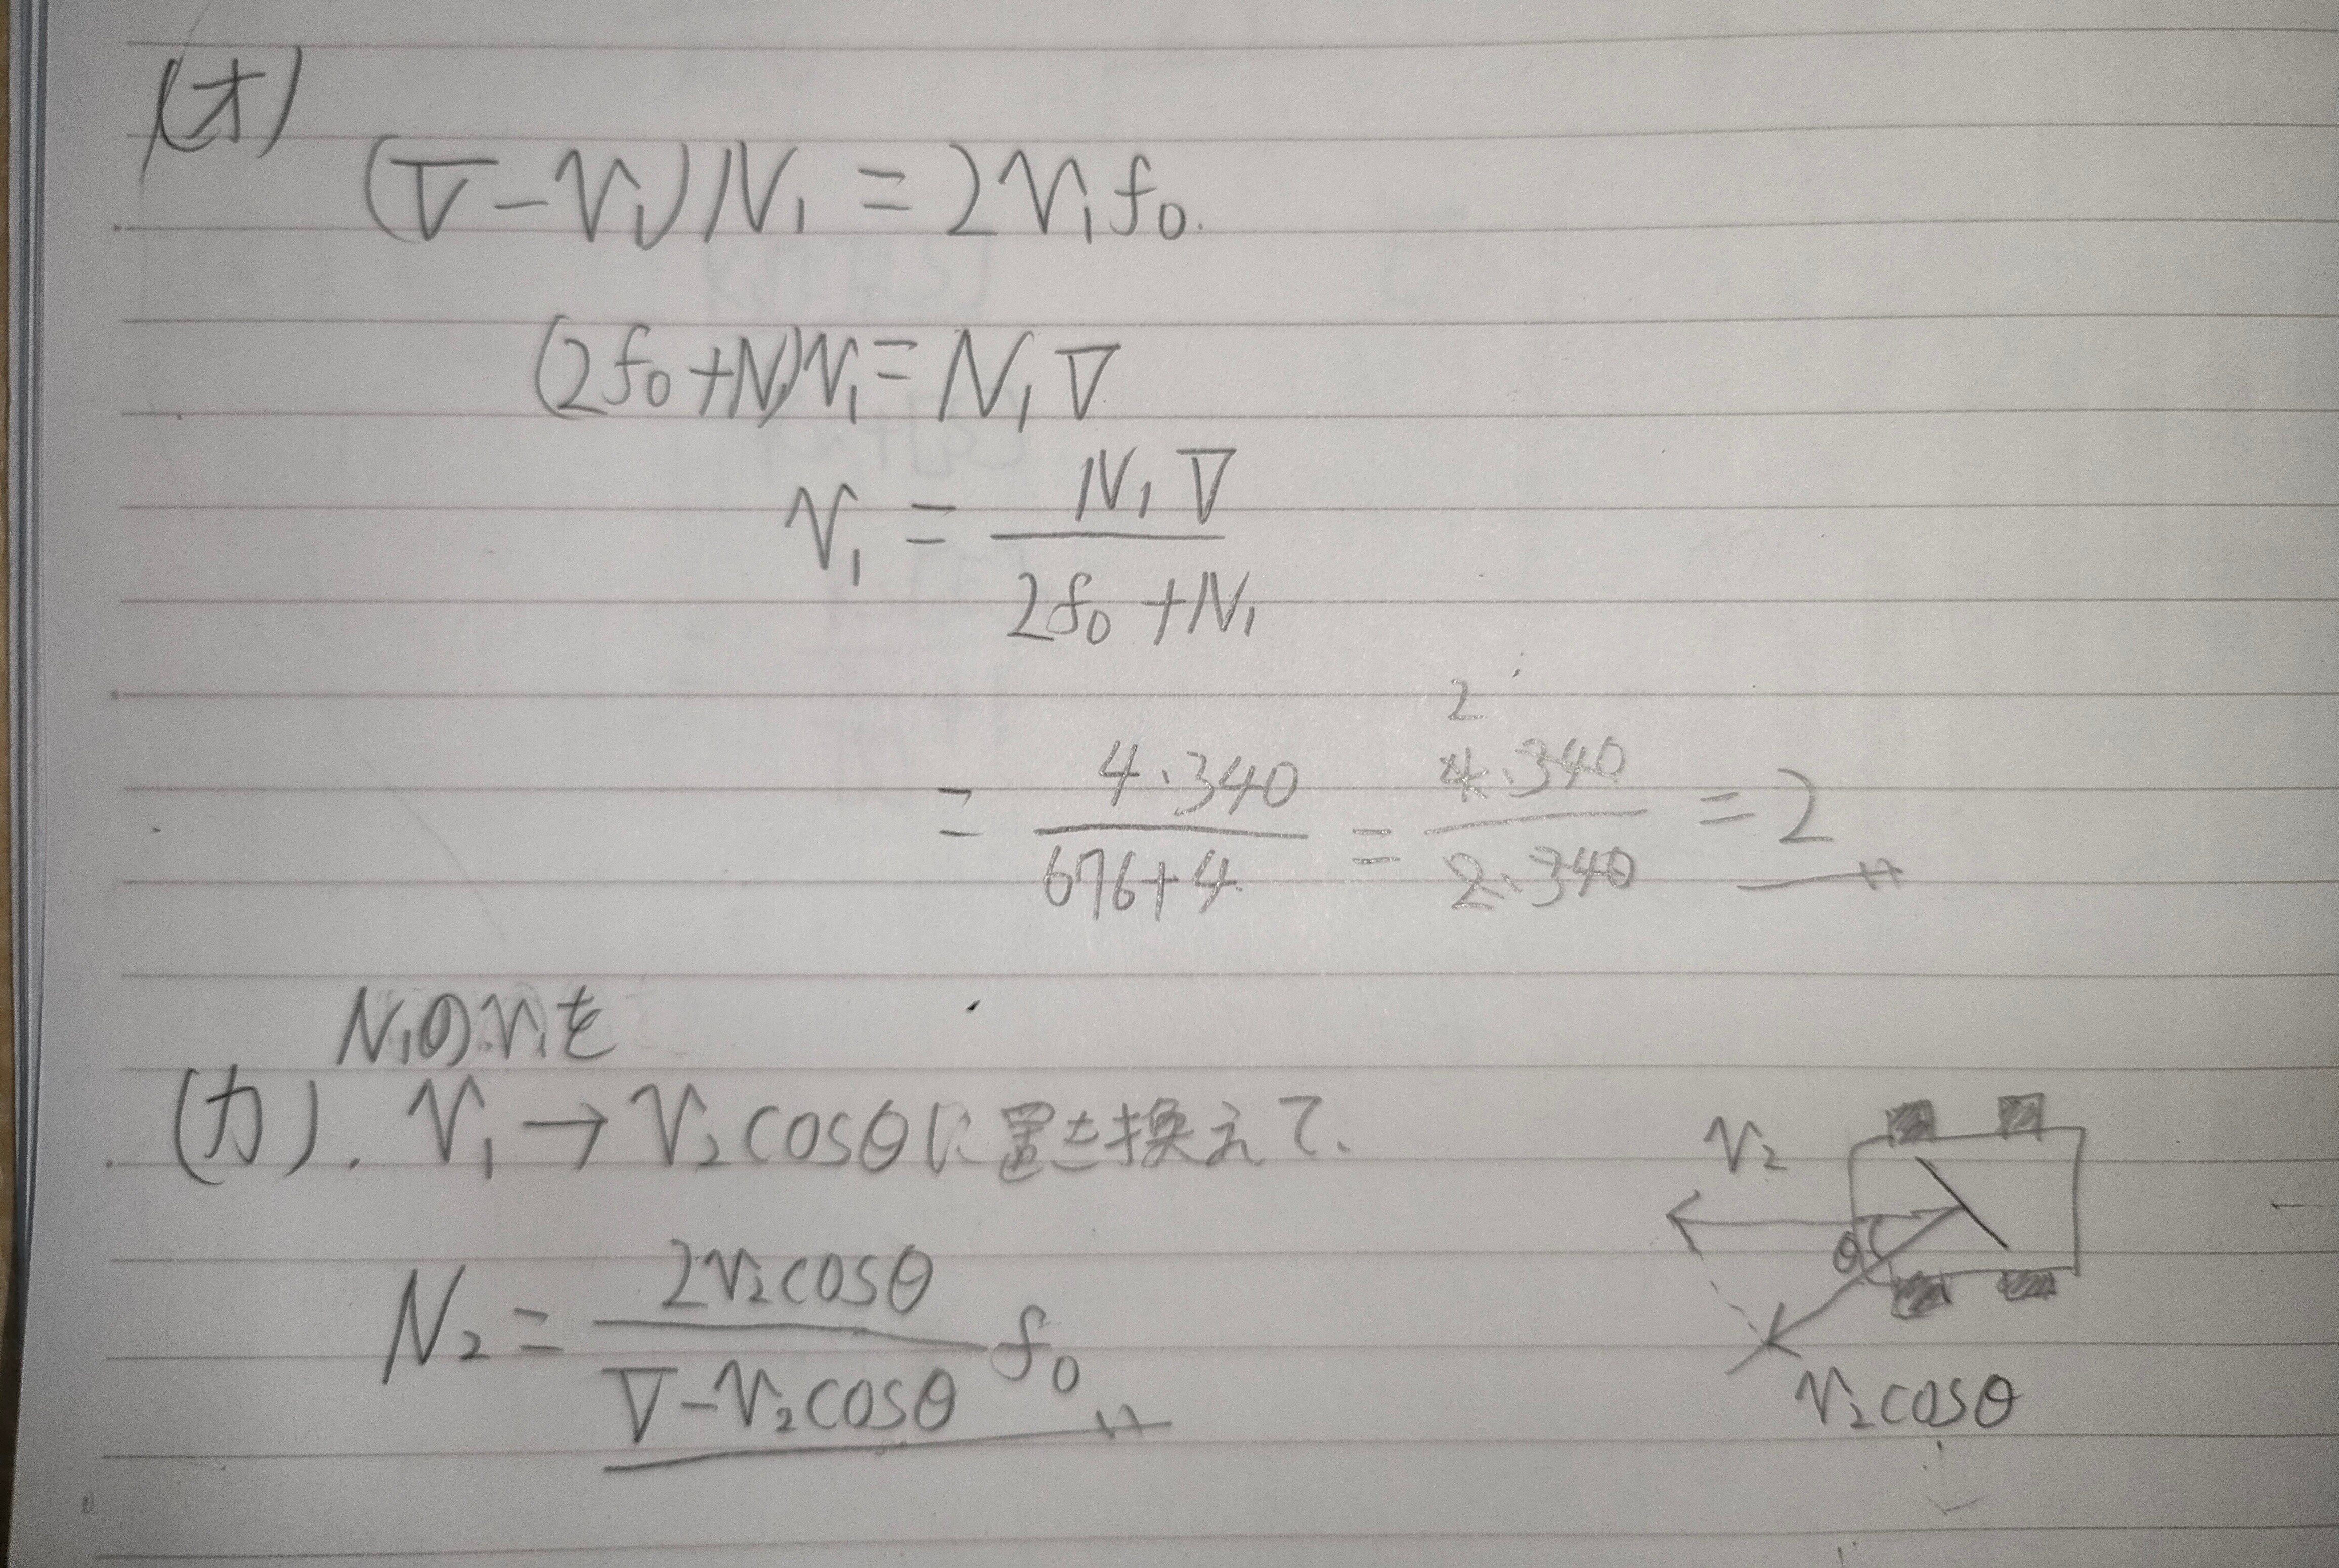 (オ)
(V-v₁)N₁=2v₁f₀.
(2f₀+N₁)v₁=N₁V
v₁ = N₁V / 2f₀+N₁
= 4·340 / 676+4 = 4·340 / 2·340 = 2
2
N₁のv₁を
(カ). v₁→v₂cosθに置き換えて、
N₂= 2v₂cosθ / V-v₂cosθ f₀
v₂
θ
v₂cosθ